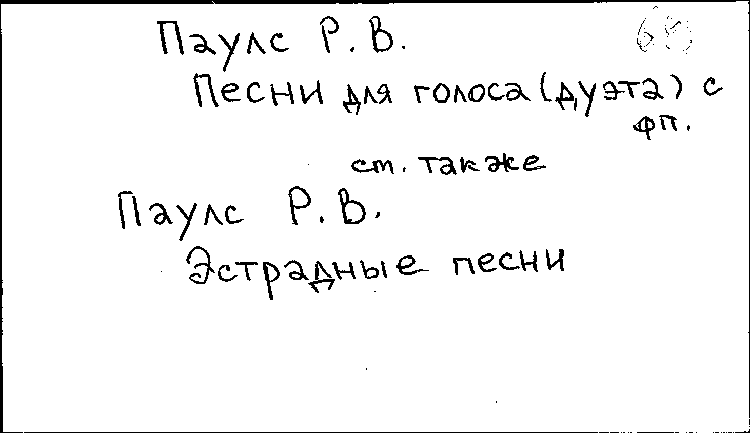 Паулс Р. В.
Песни для голоса (дуэта) с
фп.
см. также
Паулс Р. В.
Эстрадные песни